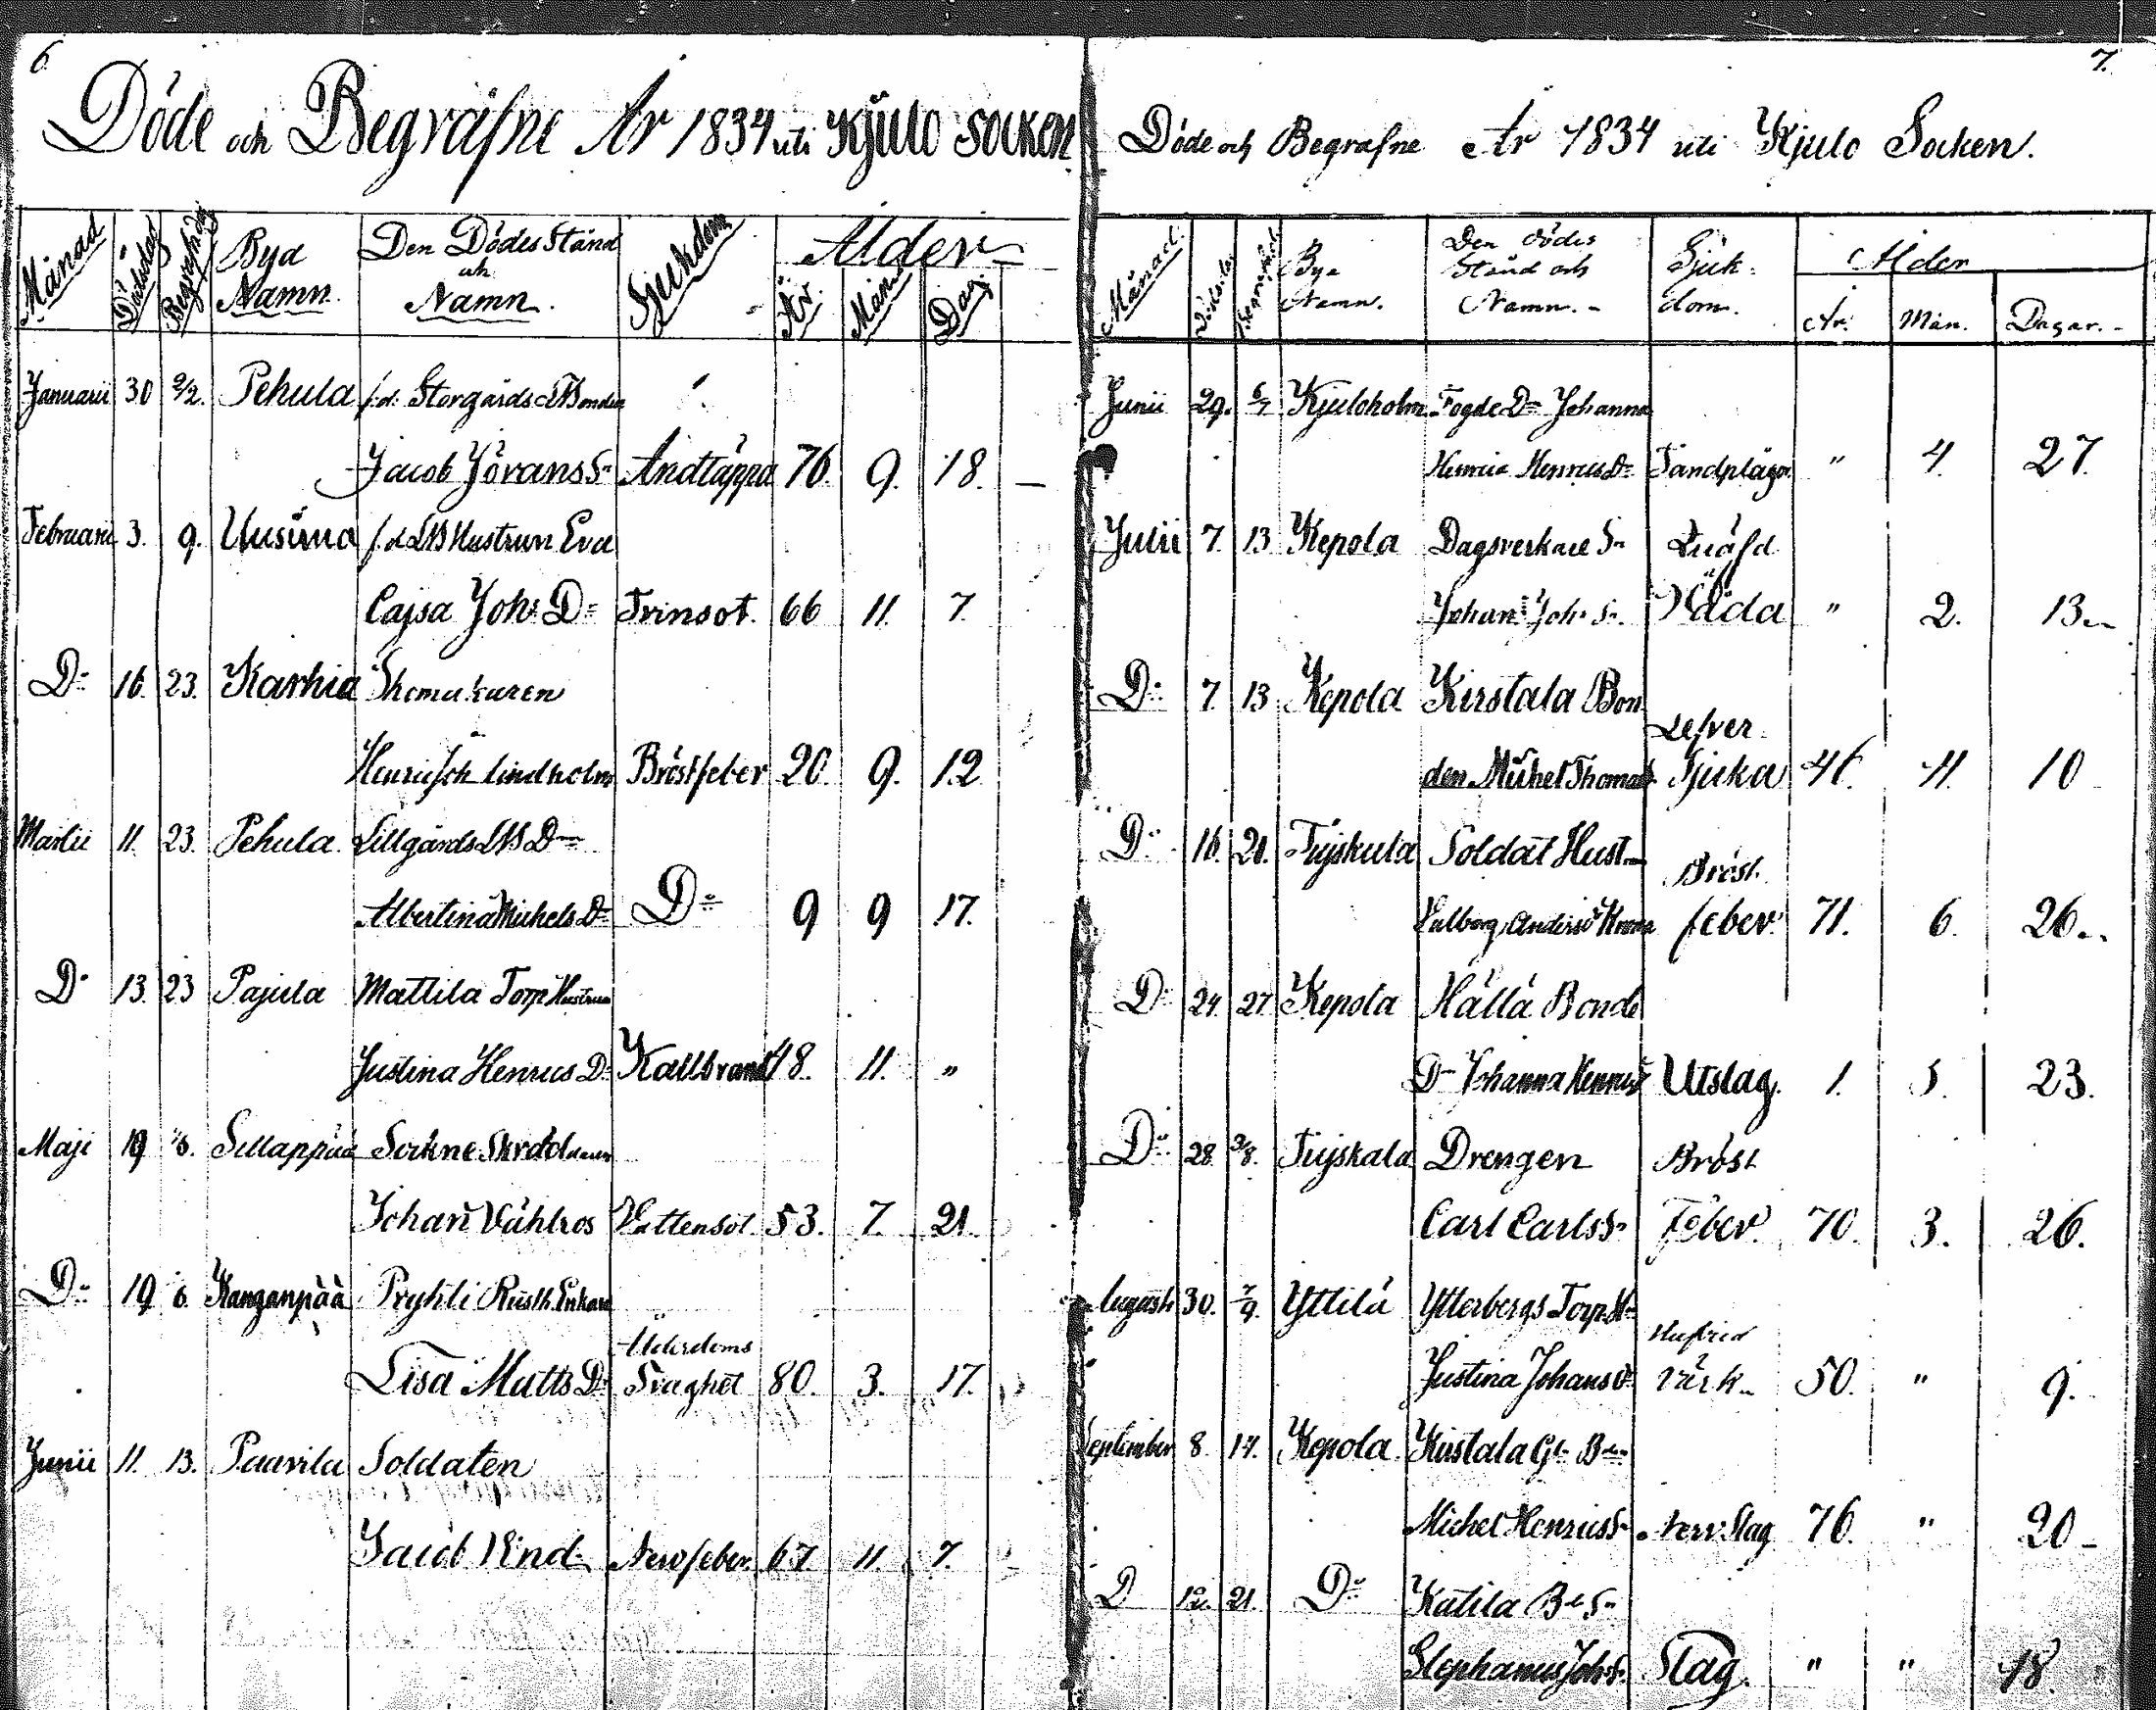 6.
Döde och Begrafne År 1834 uti Kjulo Socken
Månad Dödsdag Begrafn.dag Bya Namn. Den Dödes Stånd och Namn. Sjukdom Ålder År. Mån. Dag.
Januarii 30 2/2. Pehula f.d. Storgårds Bonden
Jacob JöransS:n Andtäppa 76. 9. 18.
Februarii 3. 9. Uusima f.d. Hustrun Eva
Cajsa Joh:s D:r Tvinsot. 66 11. 7.
D:o 16. 23. Karhia Skomakaren
Henric Joh Lindholm Bröstfeber 20. 9. 12
Martii 11. 23. Pehula. Lillgårds D:r
Albertina Michels D:r D:o 9 9 17.
D:o 13. 23 Pajula Mattila Torp Hustrun
Justina Henrics D:r Kallbrand 48. 11. "
Maji 19 Sillappää Sockne Skräddaren
Johan Vählros Vattensot. 53. 7. 21.
D:o 19 Kanganpää Prykli Rusth. Enkan
Lisa Matts D:r Ålderdoms Svaghet 80. 3. 17.
Junii 11. 13. Paavila Soldaten
Jacob Vind Nervfeber. 67. 11. 7.
7.
Döde och Begrafne År 1834 uti Kjulo Socken.
Månad. Bya Namn. Den dödes Stånd och Namn. Sjukdom. Ålder År. Mån. Dagar.
Junii 29. 6/7 Kjuloholm Fogde D:r Johanna
Henrics D:r Tandplågor " 4. 27.
Julii 7. 13 Kepola Dagsverkare S:n Quäfd
Johan Joh:s S:n " 2. 13
D:o 7. 13 Kepola Kirstala Bon
den Michel Thomas Lefver Sjuka 11. 10
D:o 16. 20. Tujskula Soldat Hust
Valborg Anders Bröst feber. 71. 6. 26.
D:o 24. 27 Kepola Hällä Bonde
D:r Johanna Utslag. 1. 5. 23.
D:o 28 3/8. Tujskala Drengen Bröst
Carl CarlsS:n Feber. 70. 3. 26.
Augusti 30. 7/9. Yttilä Ytterbergs Torp.
Justina Johans D:r Hufvud Värk 50. " 9.
September 8. 14. Kepola Kirstala G:l B:de
Michel HenricsS:n Nerv Slag 76. " 20
D 12. 21. D:o Katila B:de S:n
Stephanus Joh:s S:n Slag. " " 18.